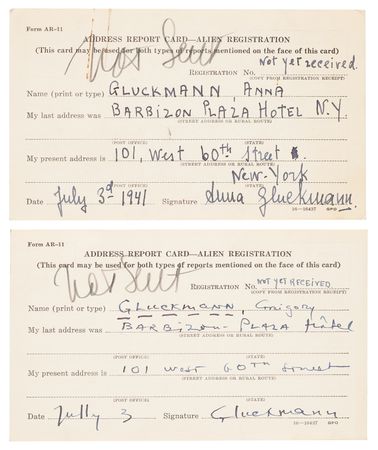 Form AR-11
ADDRESS REPORT CARD—ALIEN REGISTRATION
(This card may be used for both types of reports mentioned on the face of this card)
Not Sent
REGISTRATION NO. Not yet received
(COPY FROM REGISTRATION RECEIPT)
Name (print or type) GLUCKMANN, ANNA
My last address was BARBIZON PLAZA HOTEL N.Y.
(STREET ADDRESS OR RURAL ROUTE)
(POST OFFICE) (STATE)
My present address is 101, West 60th Street
(STREET ADDRESS OR RURAL ROUTE)
New-York
(POST OFFICE) (STATE)
Date July 3d 1941 Signature Anna Gluckmann.
16—16437 GPO
Form AR-11
ADDRESS REPORT CARD—ALIEN REGISTRATION
(This card may be used for both types of reports mentioned on the face of this card)
Not Sent
REGISTRATION NO. NOT YET RECEIVED
(COPY FROM REGISTRATION RECEIPT)
Name (print or type) GLUCKMANN, Grigory
My last address was BARBIZON-PLAZA Hôtel
(STREET ADDRESS OR RURAL ROUTE)
(POST OFFICE) (STATE)
My present address is 101 West 60TH street
(STREET ADDRESS OR RURAL ROUTE)
(POST OFFICE) (STATE)
Date Jully 3 Signature Gluckmann
16—16437 GPO